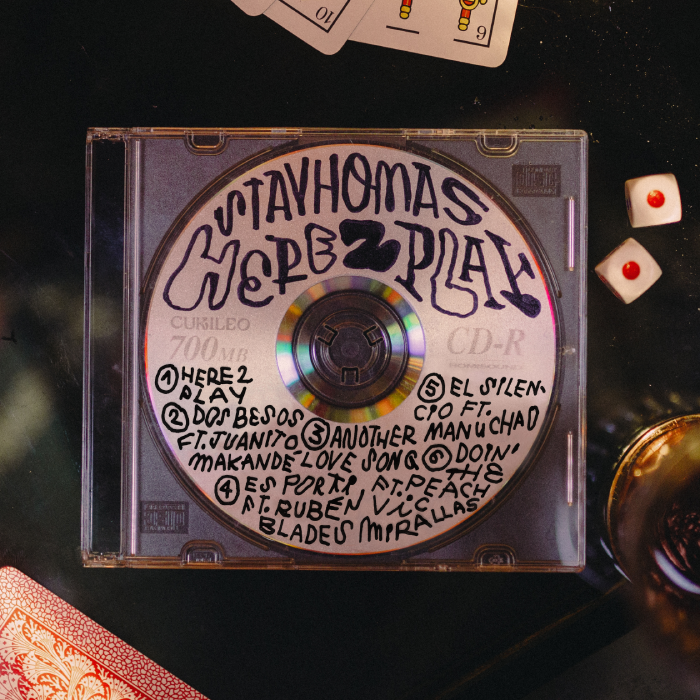 10
9
STAYHOMAS
HERE2PLAY
CURILEO
700MB
CD-R
① HERE2
PLAY
② DOS BESOS
FT. JUANITO
MAKANDÉ
③ ANOTHER
LOVE SONG
④ ES PORTI
FT. RUBÉN
BLADES
⑤ EL SILEN-
CIO FT.
MANUCHAO
⑥ DOIN'
THE
PEACH
FT.
VIC
MIRALLAS